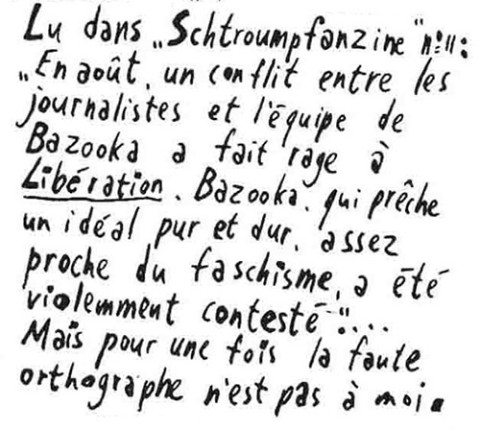 Lu dans „Schtroumpfanzine" n°11:
„En août, un conflit entre les
journalistes et l'équipe de
Bazooka a fait rage à
Libération. Bazooka, qui prêche
un idéal pur et dur, assez
proche du faschisme, a été
violemment contesté"....
Mais pour une fois la faute
orthographe n'est pas à moi.